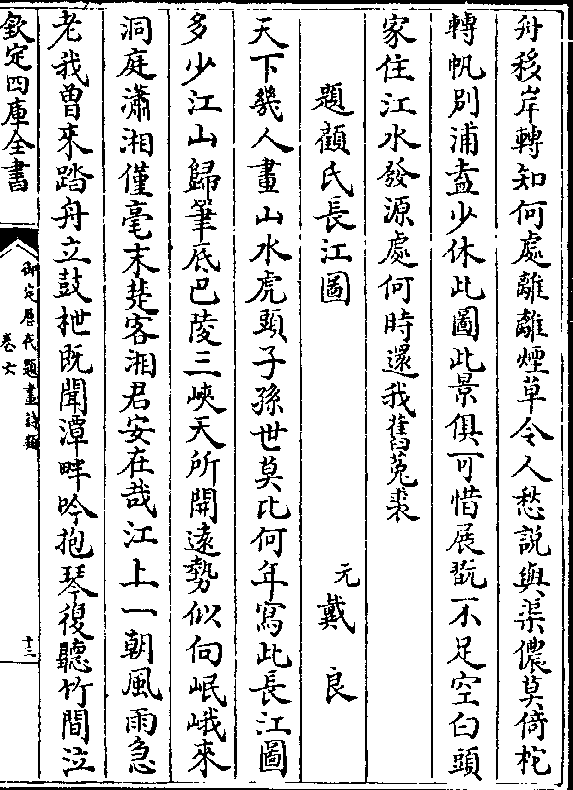 舟移岸轉知何處離離煙草令人愁說與渠儂莫倚柁
轉帆別浦盍少休此圖此景俱可惜展翫不足空白頭
家住江水發源處何時還我舊菟裘
題顧氏長江圖
元戴良
天下幾人畫山水虎頭子孫世莫比何年寫此長江圖
多少江山歸筆底巴陵三峽天所開遠勢似向岷峨來
洞庭瀟湘僅毫末楚客湘君安在哉江上一朝風雨急
老我曾來踏舟立鼓枻既聞潭畔吟抱琴復聽竹間泣
欽定四庫全書
御定歷代題畫詩類
卷六
十三